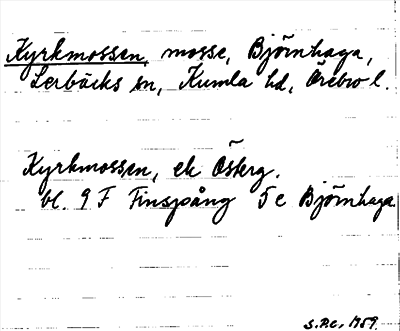 Kyrkmossen, mosse, Björnhaga,
Lerbäcks sn, Kumla hd, Örebro l.
Kyrkmossen, ek Österg.
bl. 9 F Finspång 5 c Björnhaga.
S.P.C., 1959.